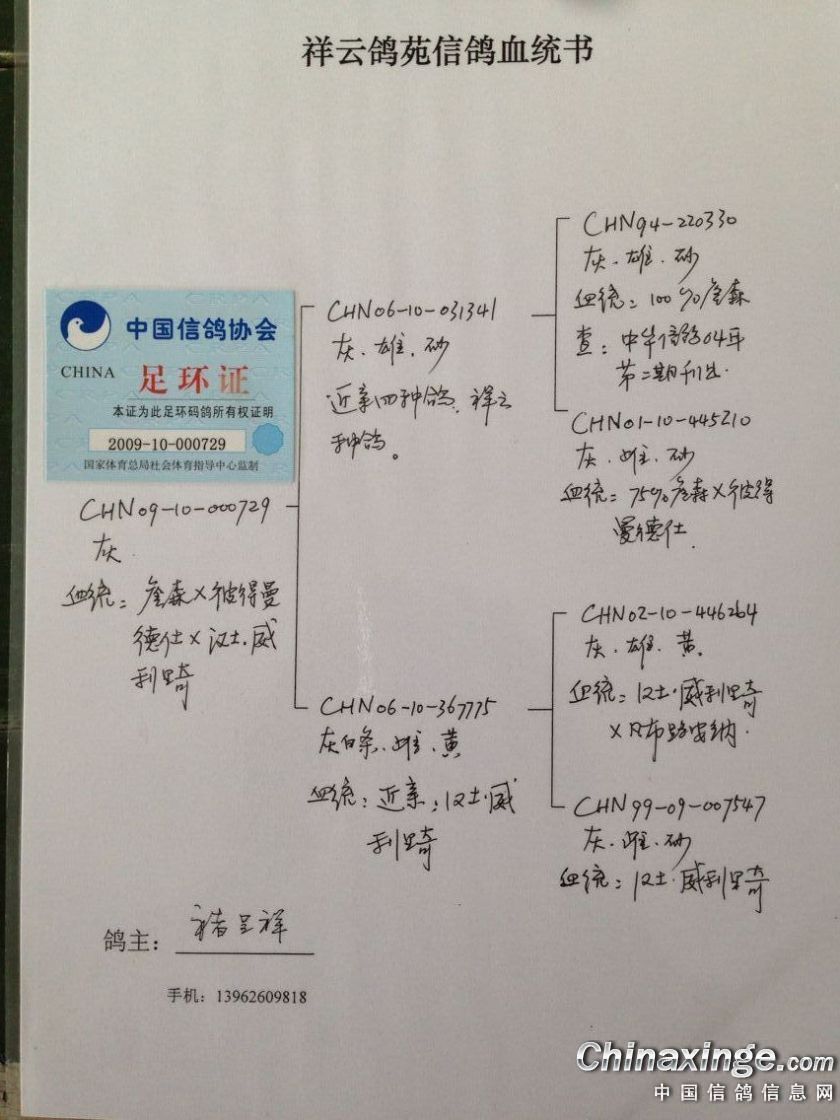 祥云鸽苑信鸽血统书
中国信鸽协会
CHINA
足环证
本证为此足环码鸽所有权证明
2009-10-000729
国家体育总局社会体育指导中心监制
CHN09-10-000729
灰
血统：詹森×彼得曼
德仕×汉土.威
利奇
CHN06-10-031341
灰.雄.砂
近亲四种鸽.祥云
种鸽。
CHN06-10-367775
灰白条.雌.黄
血统：近亲：汉土.威
利奇
CHN94-220330
灰.雄.砂
血统：100%詹森
查：中华信鸽04年
第二期刊出
CHN01-10-445210
灰.雌.砂
血统：75%詹森×彼得
曼德仕.
CHN02-10-446264
灰.雄.黄.
血统：汉土.威利奇
×凡布路安纳.
CHN99-09-007547
灰.雌.砂
血统：汉土.威利奇
鸽主：褚呈祥
手机：13962609818
Chinaxinge.com
中国信鸽信息网